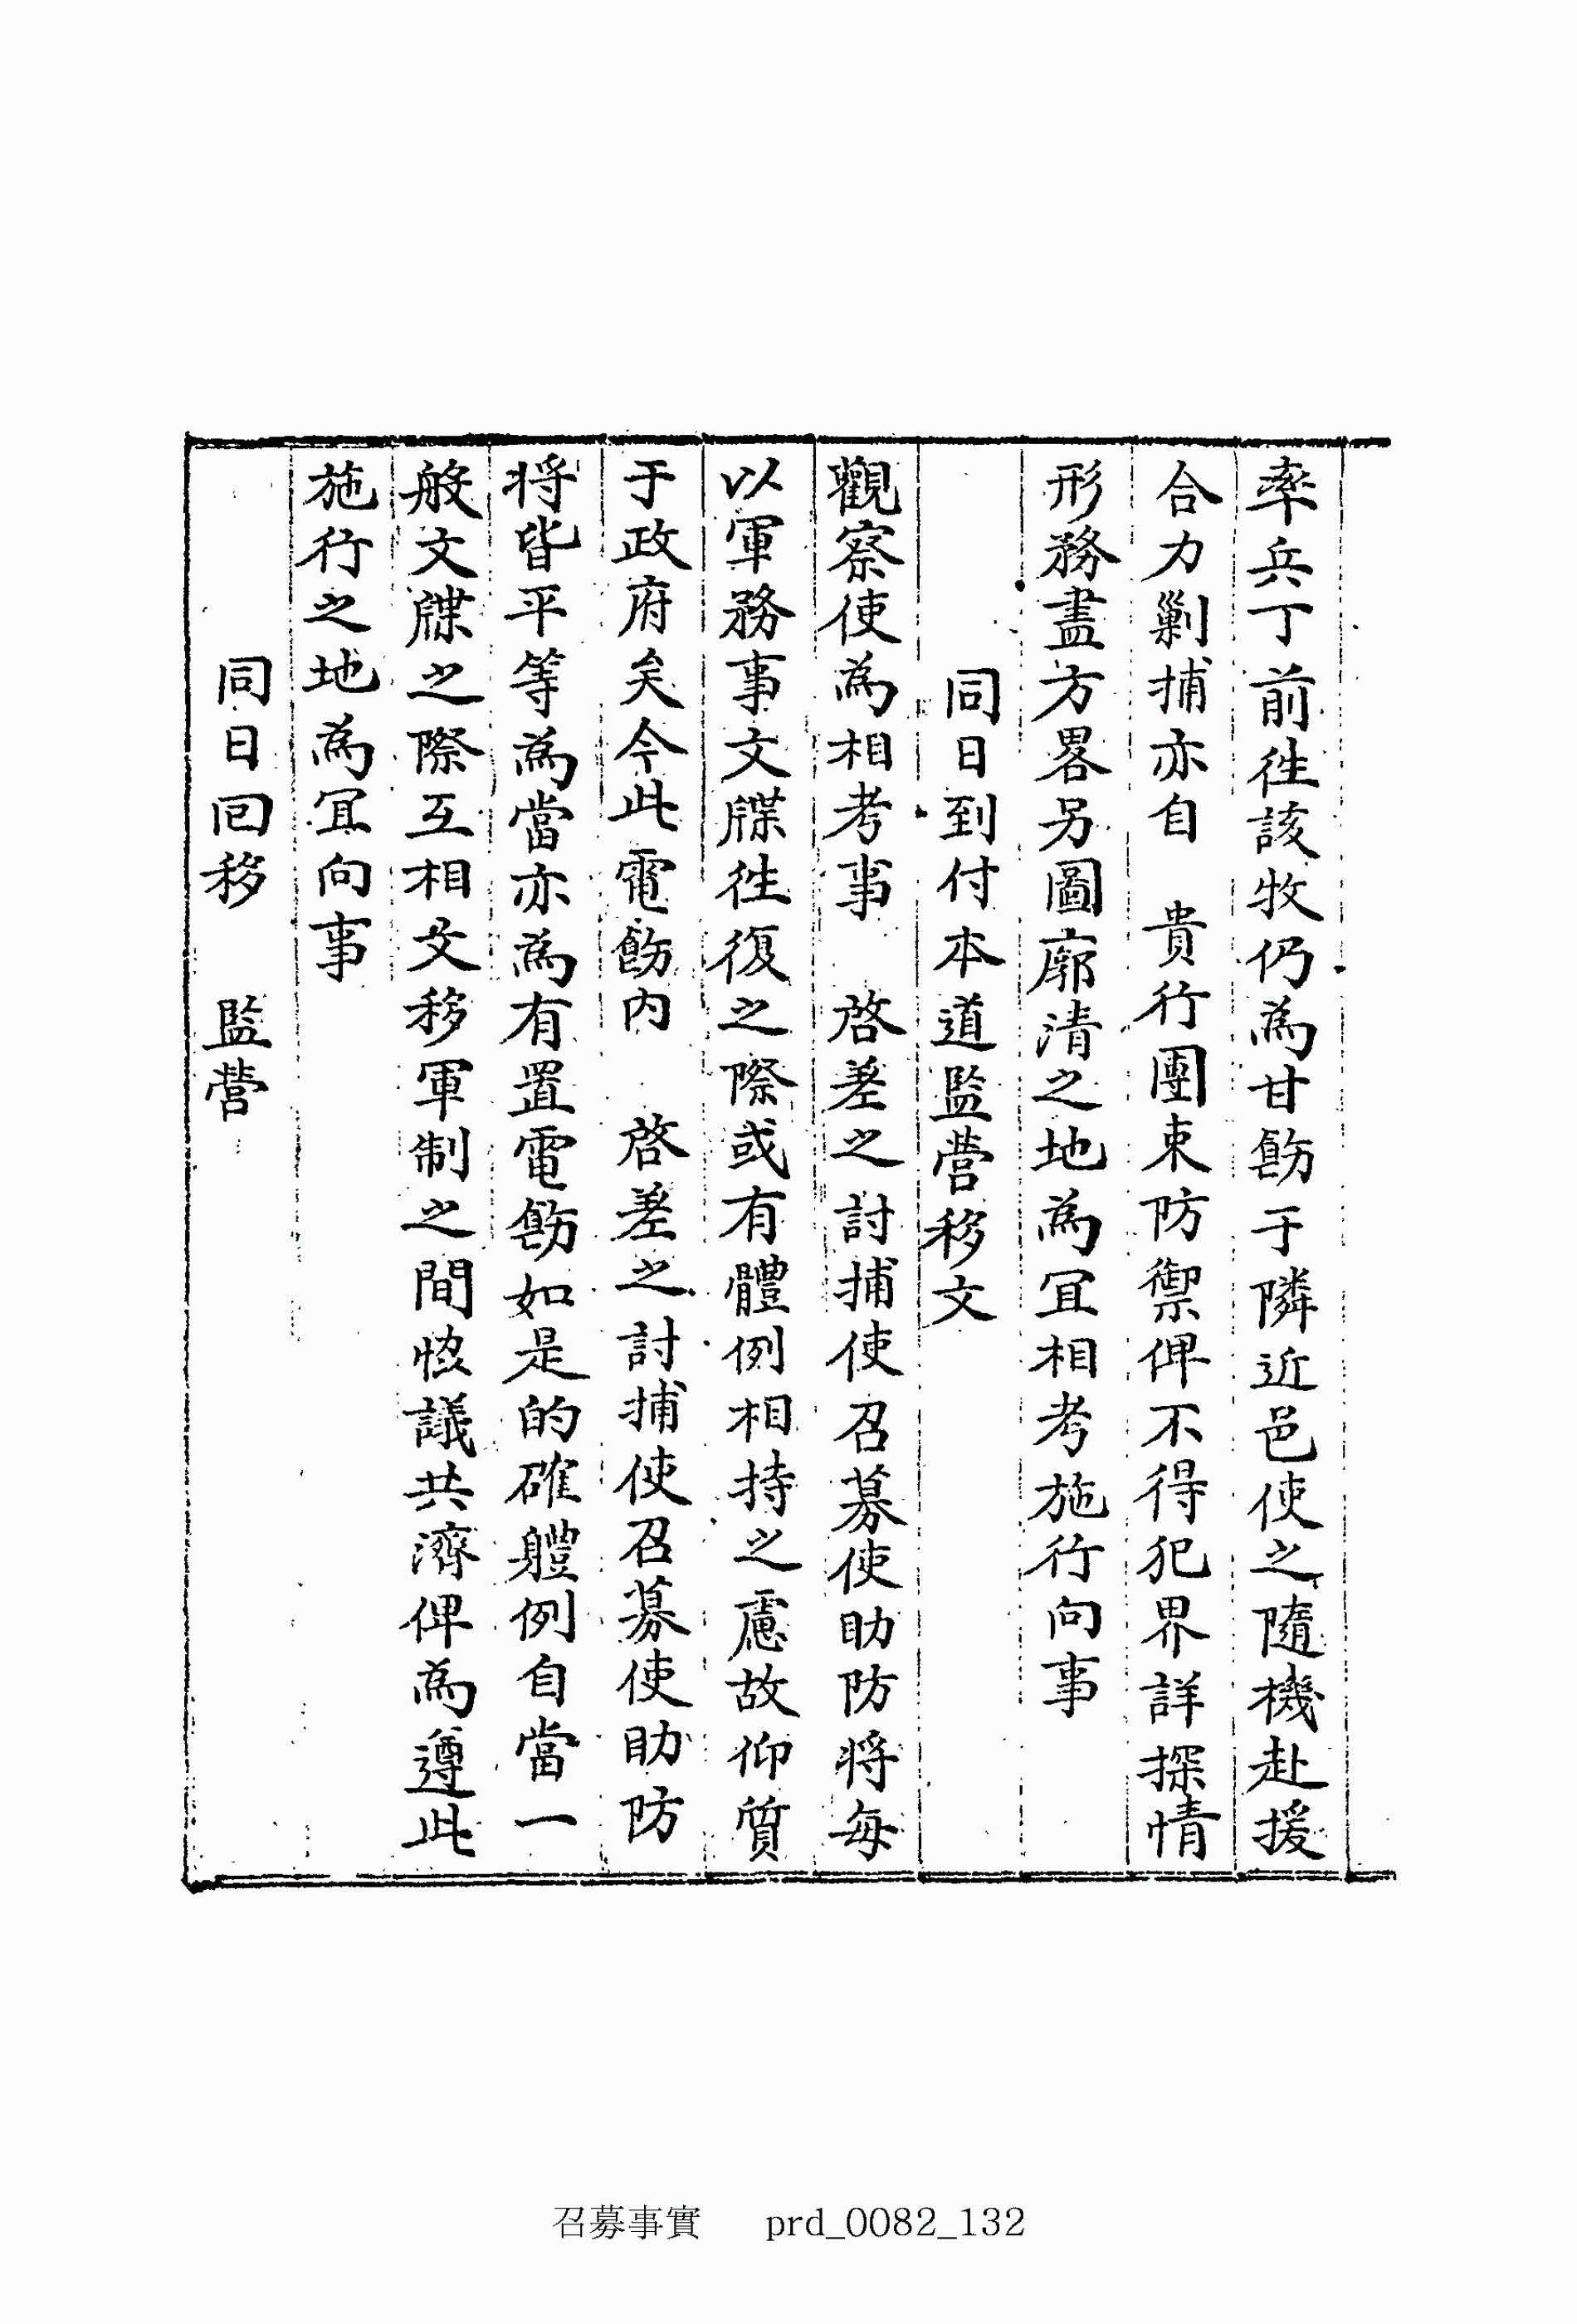 率兵丁前往該牧仍爲甘飭于隣近邑使之隨機赴援
合力剿捕亦自　貴行團束防禦俾不得犯界詳探情
形務盡方畧另圖廓清之地爲宜相考施行向事
同日到付本道監營移文
觀察使爲相考事　啓差之討捕使召募使助防將每
以軍務事文牒往復之際或有體例相持之慮故仰質
于政府矣今此電飭內　啓差之討捕使召募使助防
將皆平等爲當亦爲有置電飭如是的確軆例自當一
般文牒之際互相文移軍制之間恊議共濟俾爲遵此
施行之地爲宜向事
同日回移　監營
召募事實　prd_0082_132